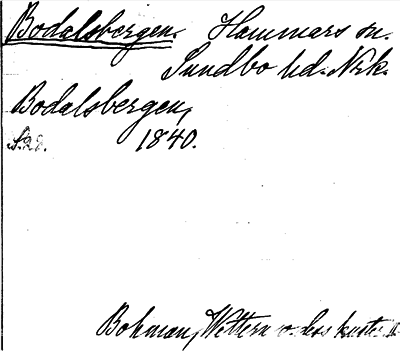 Bodalsbergen. Hammars sn.
Sundbo hd. Nrk.
Bodalsbergen,
1840.
Bohman, Wettern o. dess kuster II